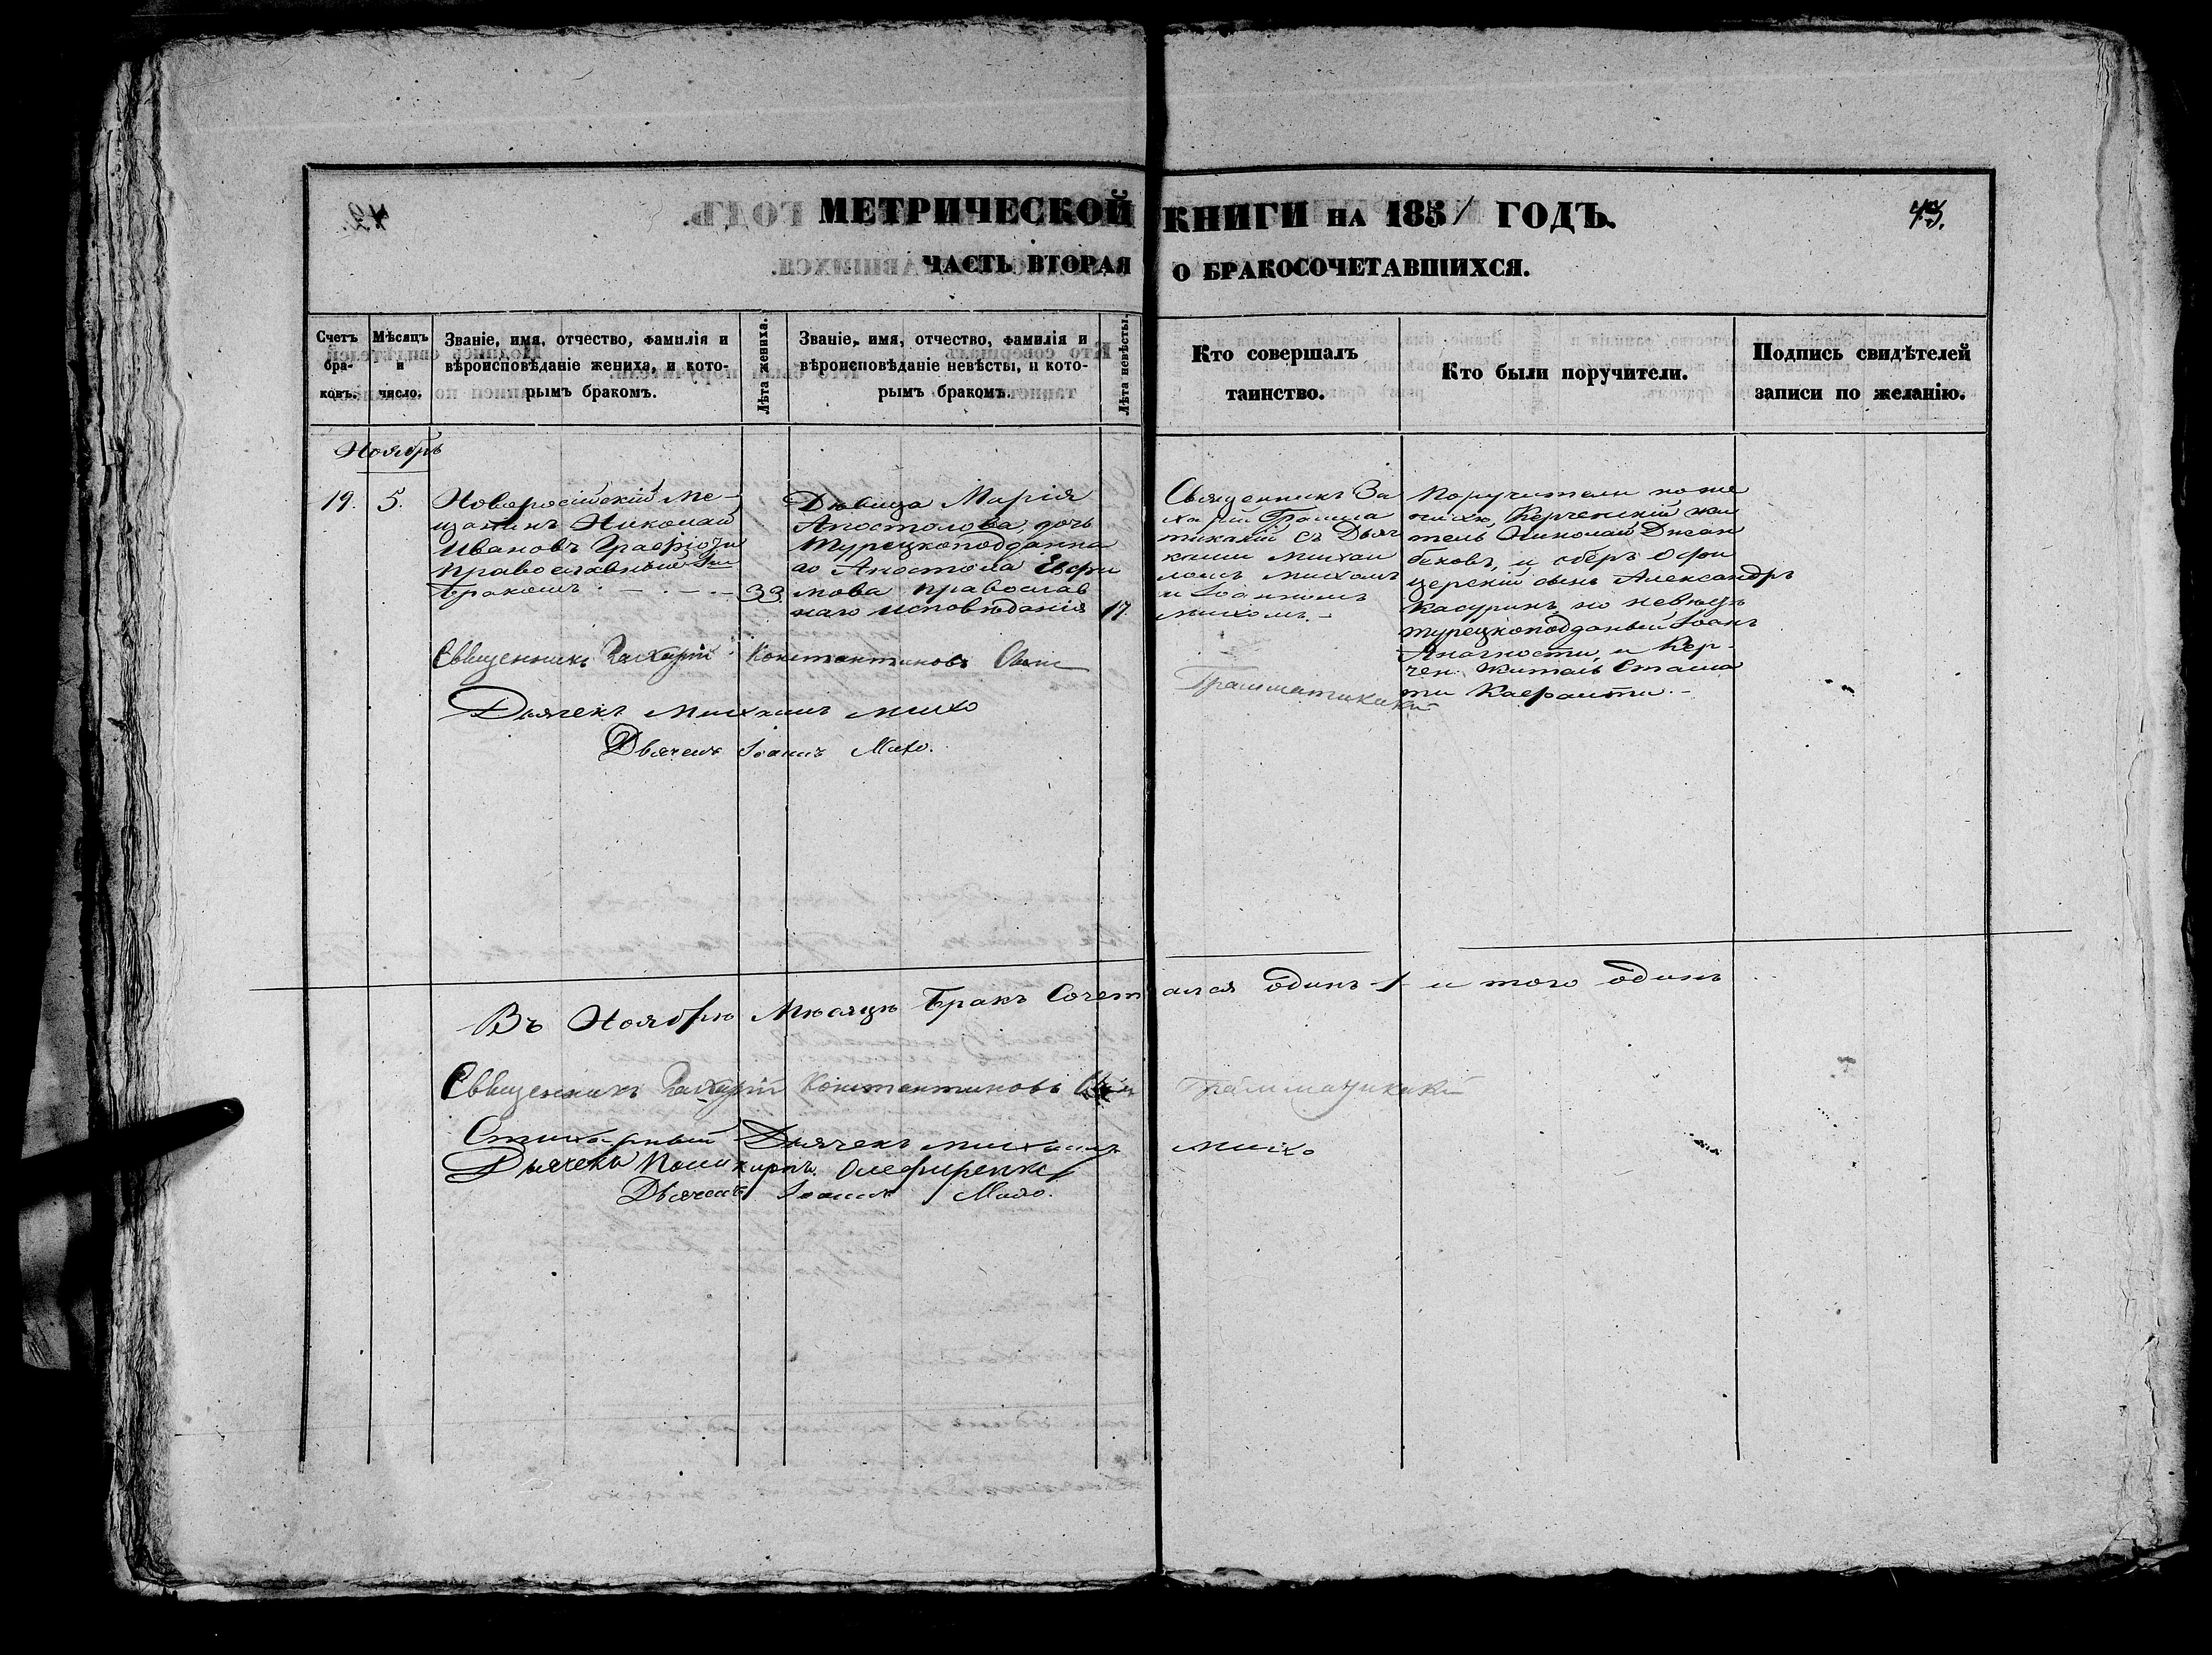 МЕТРИЧЕСКОЙ КНИГИ НА 1851 ГОДЪ.
43.
ЧАСТЬ ВТОРАЯ О БРАКОСОЧЕТАВШИХСЯ.
Счетъ бра-ковъ.
Мѣсяцъ и число.
Званіе, имя, отчество, фамилія и
вѣроисповѣданіе жениха, и кото-
рымъ бракомъ.
Лѣта жениха.
Званіе, имя, отчество, фамилія и
вѣроисповѣданіе невѣсты, и кото-
рымъ бракомъ.
Лѣта невѣсты.
Кто совершалъ
таинство.
Кто были поручители.
Подпись свидѣтелей
записи по желанію.
Ноябрь
19. 5.
Новоросійскій ме-
щанинъ Николай
Ивановъ
православный
бракомъ 33.
Дѣвица Марія
Апостолова дочь
Турецкоподданна
го Апостола Евфи
мова православ
наго исповѣданія 17.
Священникъ За
харій Грамма
тикакій съ Дьяч
ками Михаи
ломъ Михомъ
и Іоанномъ
Михомъ.
Поручители по же
нихѣ, Керченскій жи
тель Николай Джан
бековъ, и оберъ Офи
церскій сынъ Александръ
Касуринъ по невѣстѣ
турецкоподданый Іоанъ
Анагности, и Кер-
чен. житель Стама
ти
Священникъ Захарій Константиновъ Сынъ Грамматикакій
Дьячекъ Михаилъ Михо
Дьячекъ Іоаннъ Михо.
Въ Ноябрѣ Мѣсяцѣ Бракъ Сочетался одинъ 1 и того одинъ
Священникъ Захарій Константиновъ Грамматикакій
Стихарный Дьячекъ Михаилъ Михо
Дьячекъ
Дьячекъ Іоаннъ Михо.